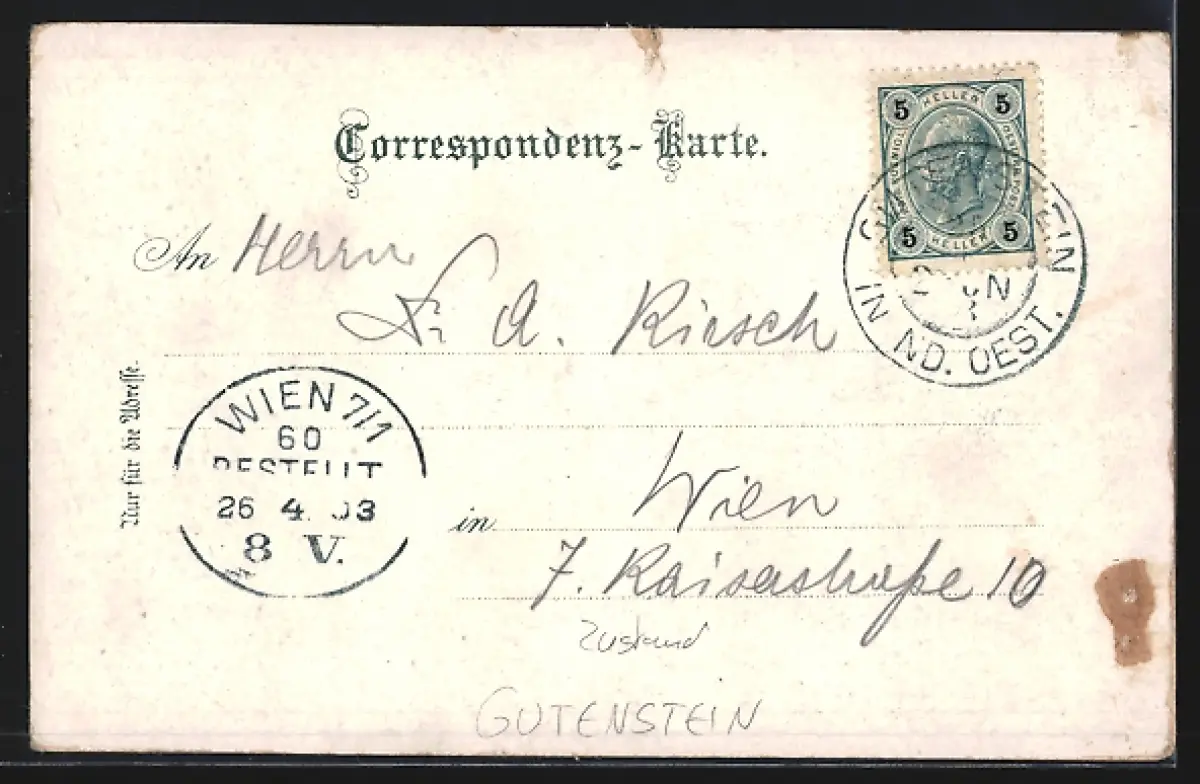 Correspondenz-Karte.
5 HELLER 5
5 HELLER 5
IN ND. OEST.
An Herrn
A. Kirsch
Nur für die Adresse.
WIEN 7/1
60
BESTELLT
26 4. 03
8 V.
in Wien
7. Kaiserstraße 10
Zustand
GUTENSTEIN